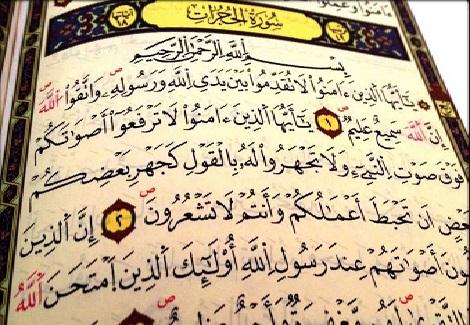 ءَامَنُوا۟ وَعَمِلُوا۟
سُورَةُ الحُجُرَاتِ ١٨
بِسْمِ ٱللَّهِ ٱلرَّحْمَٰنِ ٱلرَّحِيمِ
يَٰٓأَيُّهَا ٱلَّذِينَ ءَامَنُوا۟ لَا تُقَدِّمُوا۟ بَيْنَ يَدَىِ ٱللَّهِ وَرَسُولِهِۦ وَٱتَّقُوا۟ ٱللَّهَ
إِنَّ ٱللَّهَ سَمِيعٌ عَلِيمٌ ١ يَٰٓأَيُّهَا ٱلَّذِينَ ءَامَنُوا۟ لَا تَرْفَعُوٓا۟ أَصْوَٰتَكُمْ
فَوْقَ صَوْتِ ٱلنَّبِىِّ وَلَا تَجْهَرُوا۟ لَهُۥ بِٱلْقَوْلِ كَجَهْرِ بَعْضِكُمْ
عْضٍ أَن تَحْبَطَ أَعْمَٰلُكُمْ وَأَنتُمْ لَا تَشْعُرُونَ ٢ إِنَّ ٱلَّذِينَ
ونَ أَصْوَٰتَهُمْ عِندَ رَسُولِ ٱللَّهِ أُو۟لَٰٓئِكَ ٱلَّذِينَ ٱمْتَحَنَ ٱللَّهُ